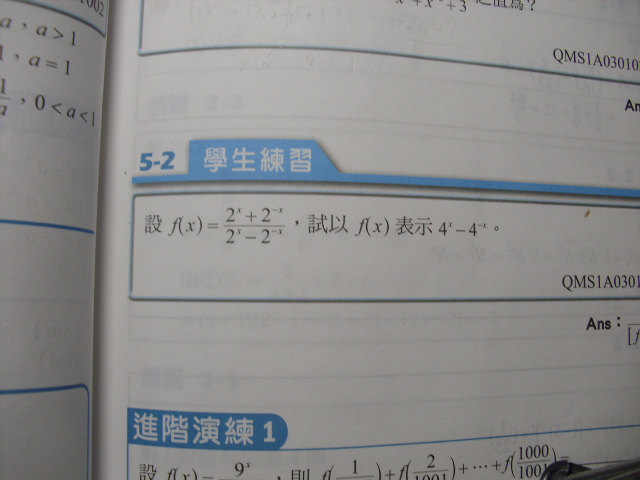 1002
a，a>1
1，a=1
1/a，0<a<1
x+x⁻¹+3 之值為？
QMS1A030102
An
5-2 學生練習
設 f(x) = (2ˣ+2⁻ˣ)/(2ˣ−2⁻ˣ)，試以 f(x) 表示 4ˣ−4⁻ˣ。
QMS1A0301
Ans：
[f
進階演練1
設 f(x) = 9ˣ ，則 f(1 )+f(2/1001)+⋯+f(1000/1001)=